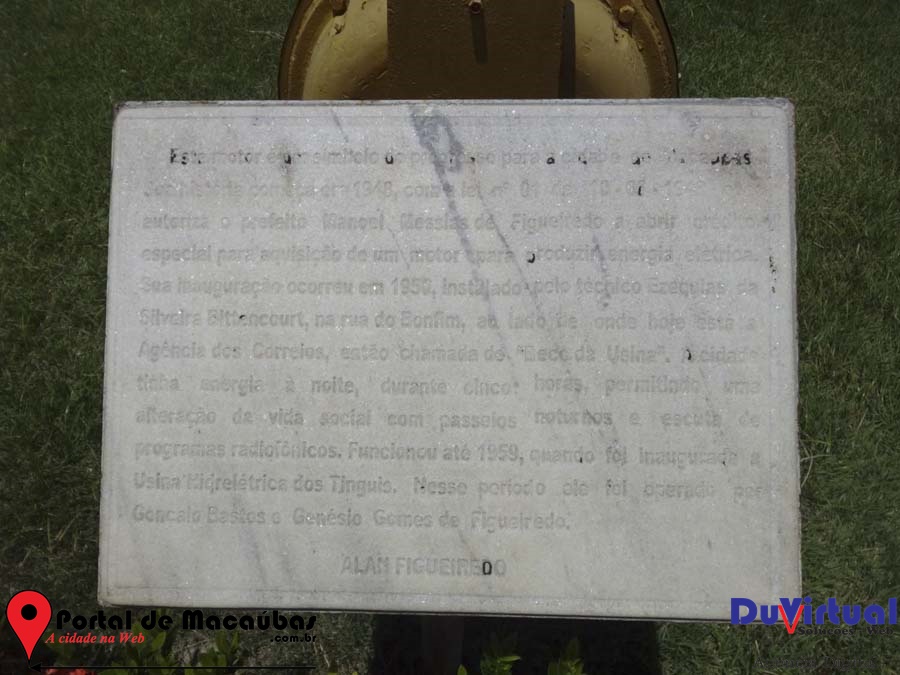 Este motor é um símbolo do progresso para a cidade de Macaúbas.
Sua história começa em 1948, com a lei nº 01 de 18 - 05 - 1948
autoriza o prefeito Manoel Messias de Figueiredo a abrir crédito
especial para aquisição de um motor para produzir energia elétrica.
Sua inauguração ocorreu em 1950, instalado pelo técnico Ezequias da
Silveira Bittencourt, na rua do Bonfim, ao lado de onde hoje está a
Agência dos Correios, então chamada de "Beco da Usina". A cidade
tinha energia à noite, durante cinco horas, permitindo uma
alteração da vida social com passeios noturnos e escuta de
programas radiofônicos. Funcionou até 1959, quando foi inaugurada a
Usina Hidrelétrica dos Tinguis. Nesse período ele foi operado por
Gonçalo Bastos e Genésio Gomes de Figueiredo.
ALAN FIGUEIREDO
Portal de Macaúbas
A cidade na Web .com.br
DuVirtual
Soluções Web